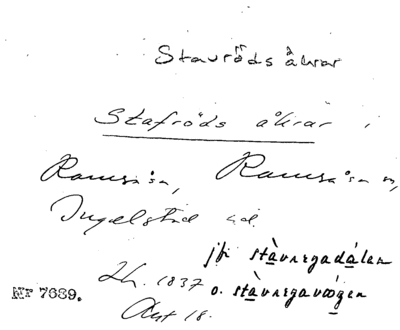 Stavröds åkrar
Stafröds åkrar i
Ramsåsa, Ramsåsa sn,
Ingelstad hd.
jfr stàvnegadálen
Lh. 1837 o. stàvnegavägen
Nr 7689. Akt 18.